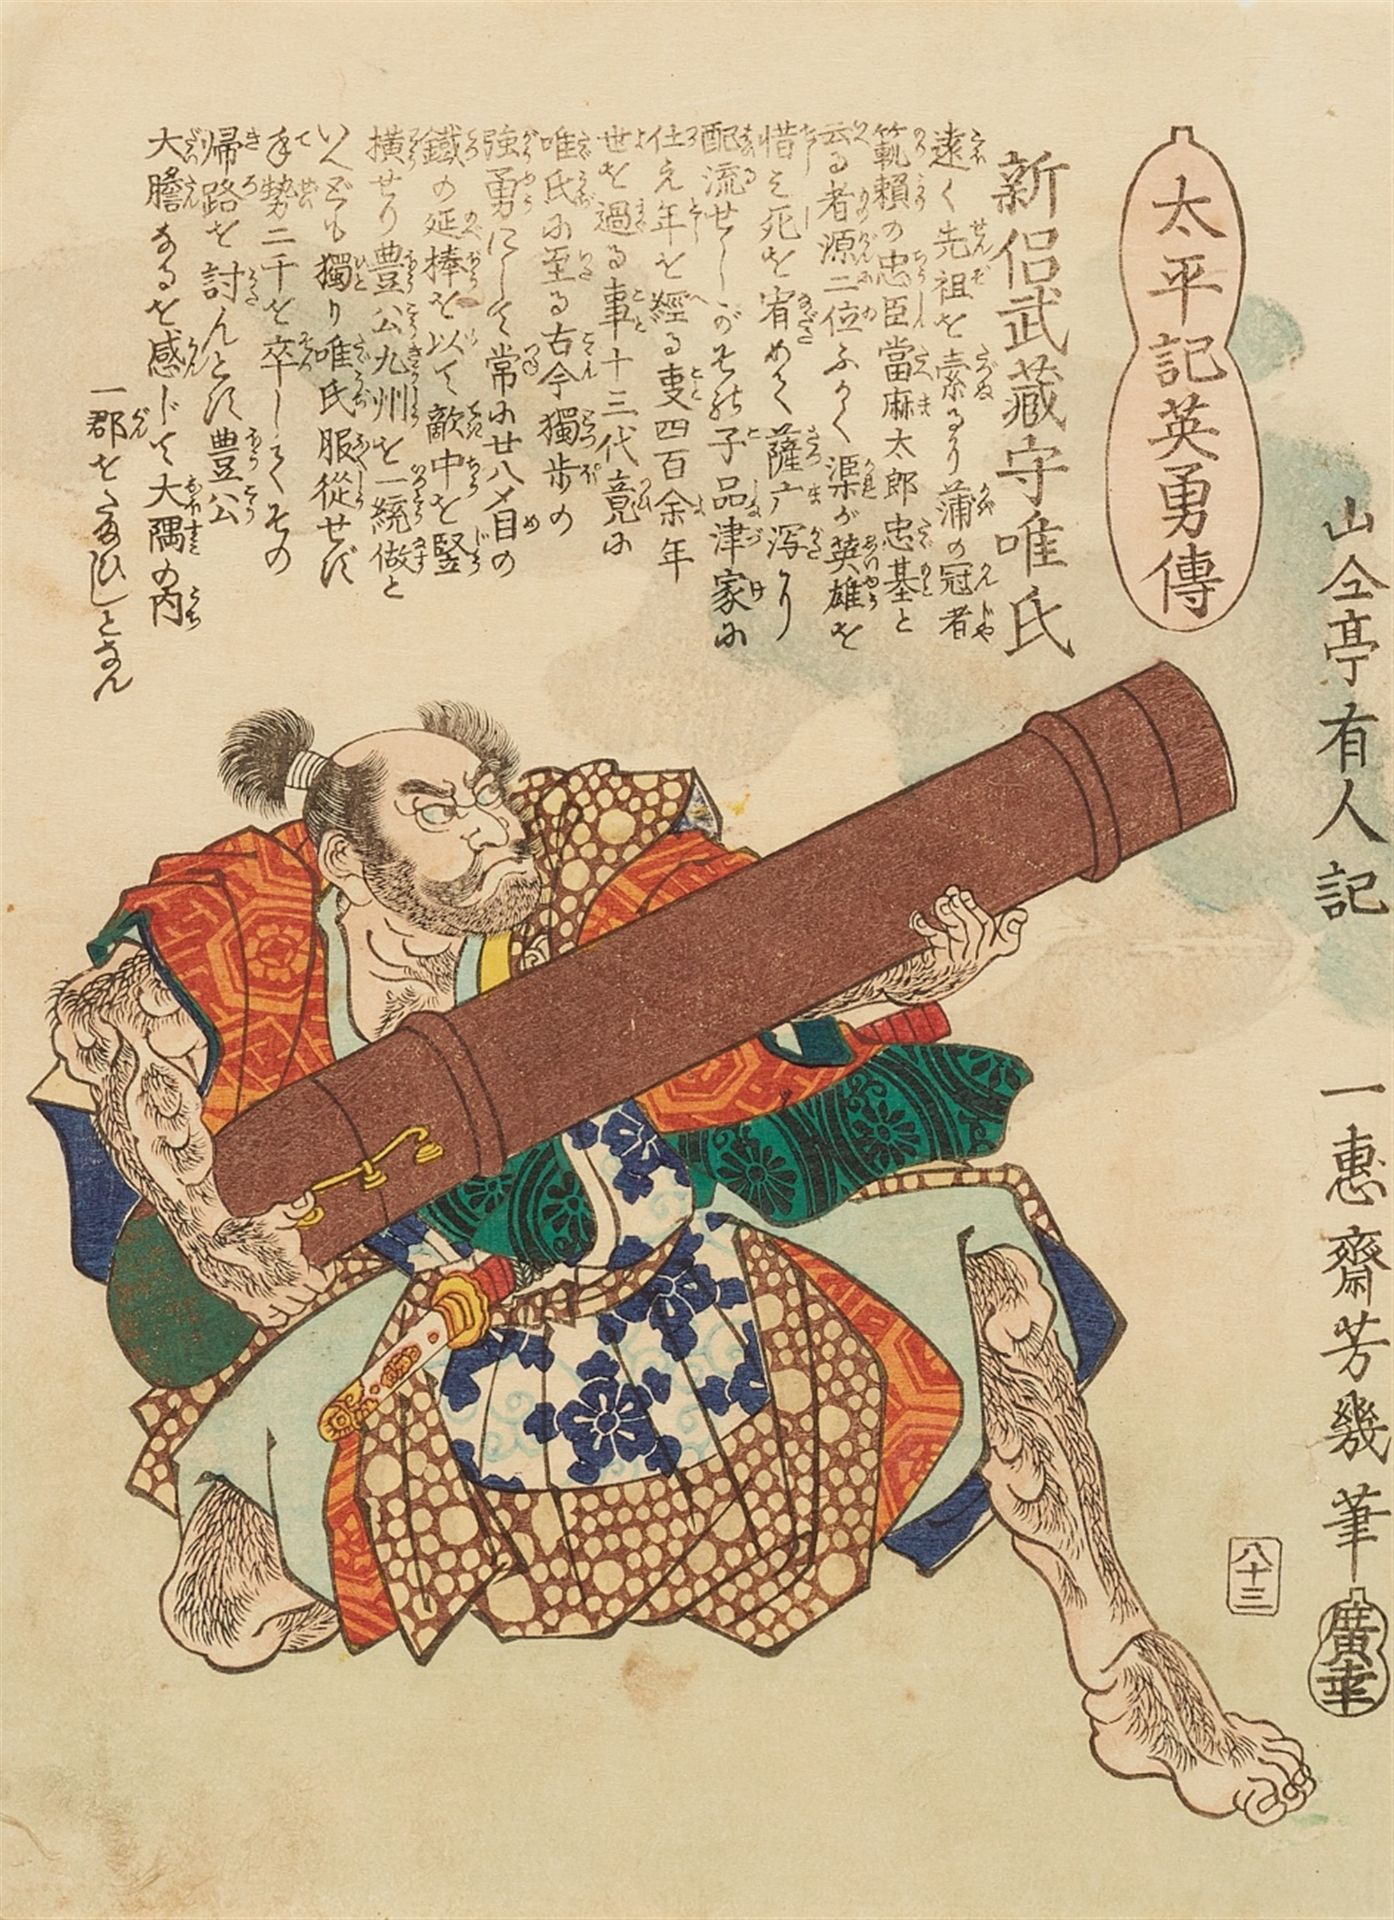 太平記英勇傳
新侶武藏守唯氏
遠く先祖を素るり蒲の冠者
範頼の忠臣當麻太郎忠基と
云る者源二位ふかく渠が英雄を
惜み死を宥めて薩广泻に
配流せしがその子品津家に
仕え年を經る叓四百余年
世を過る事十三代竟に
唯氏に至る古今獨歩の
強勇にして常に廿八〆目の
鐵の延棒を以て敵中を竪
横せり豊公九州を一統做と
いへども獨り唯氏服從せず
手勢二千を卒してその
帰路を討んとす豊公
大膽なるを感じて大隅の内
一郡をたまひしとなん
山仝亭有人記
一惠齋芳幾筆
廣幸
八十三